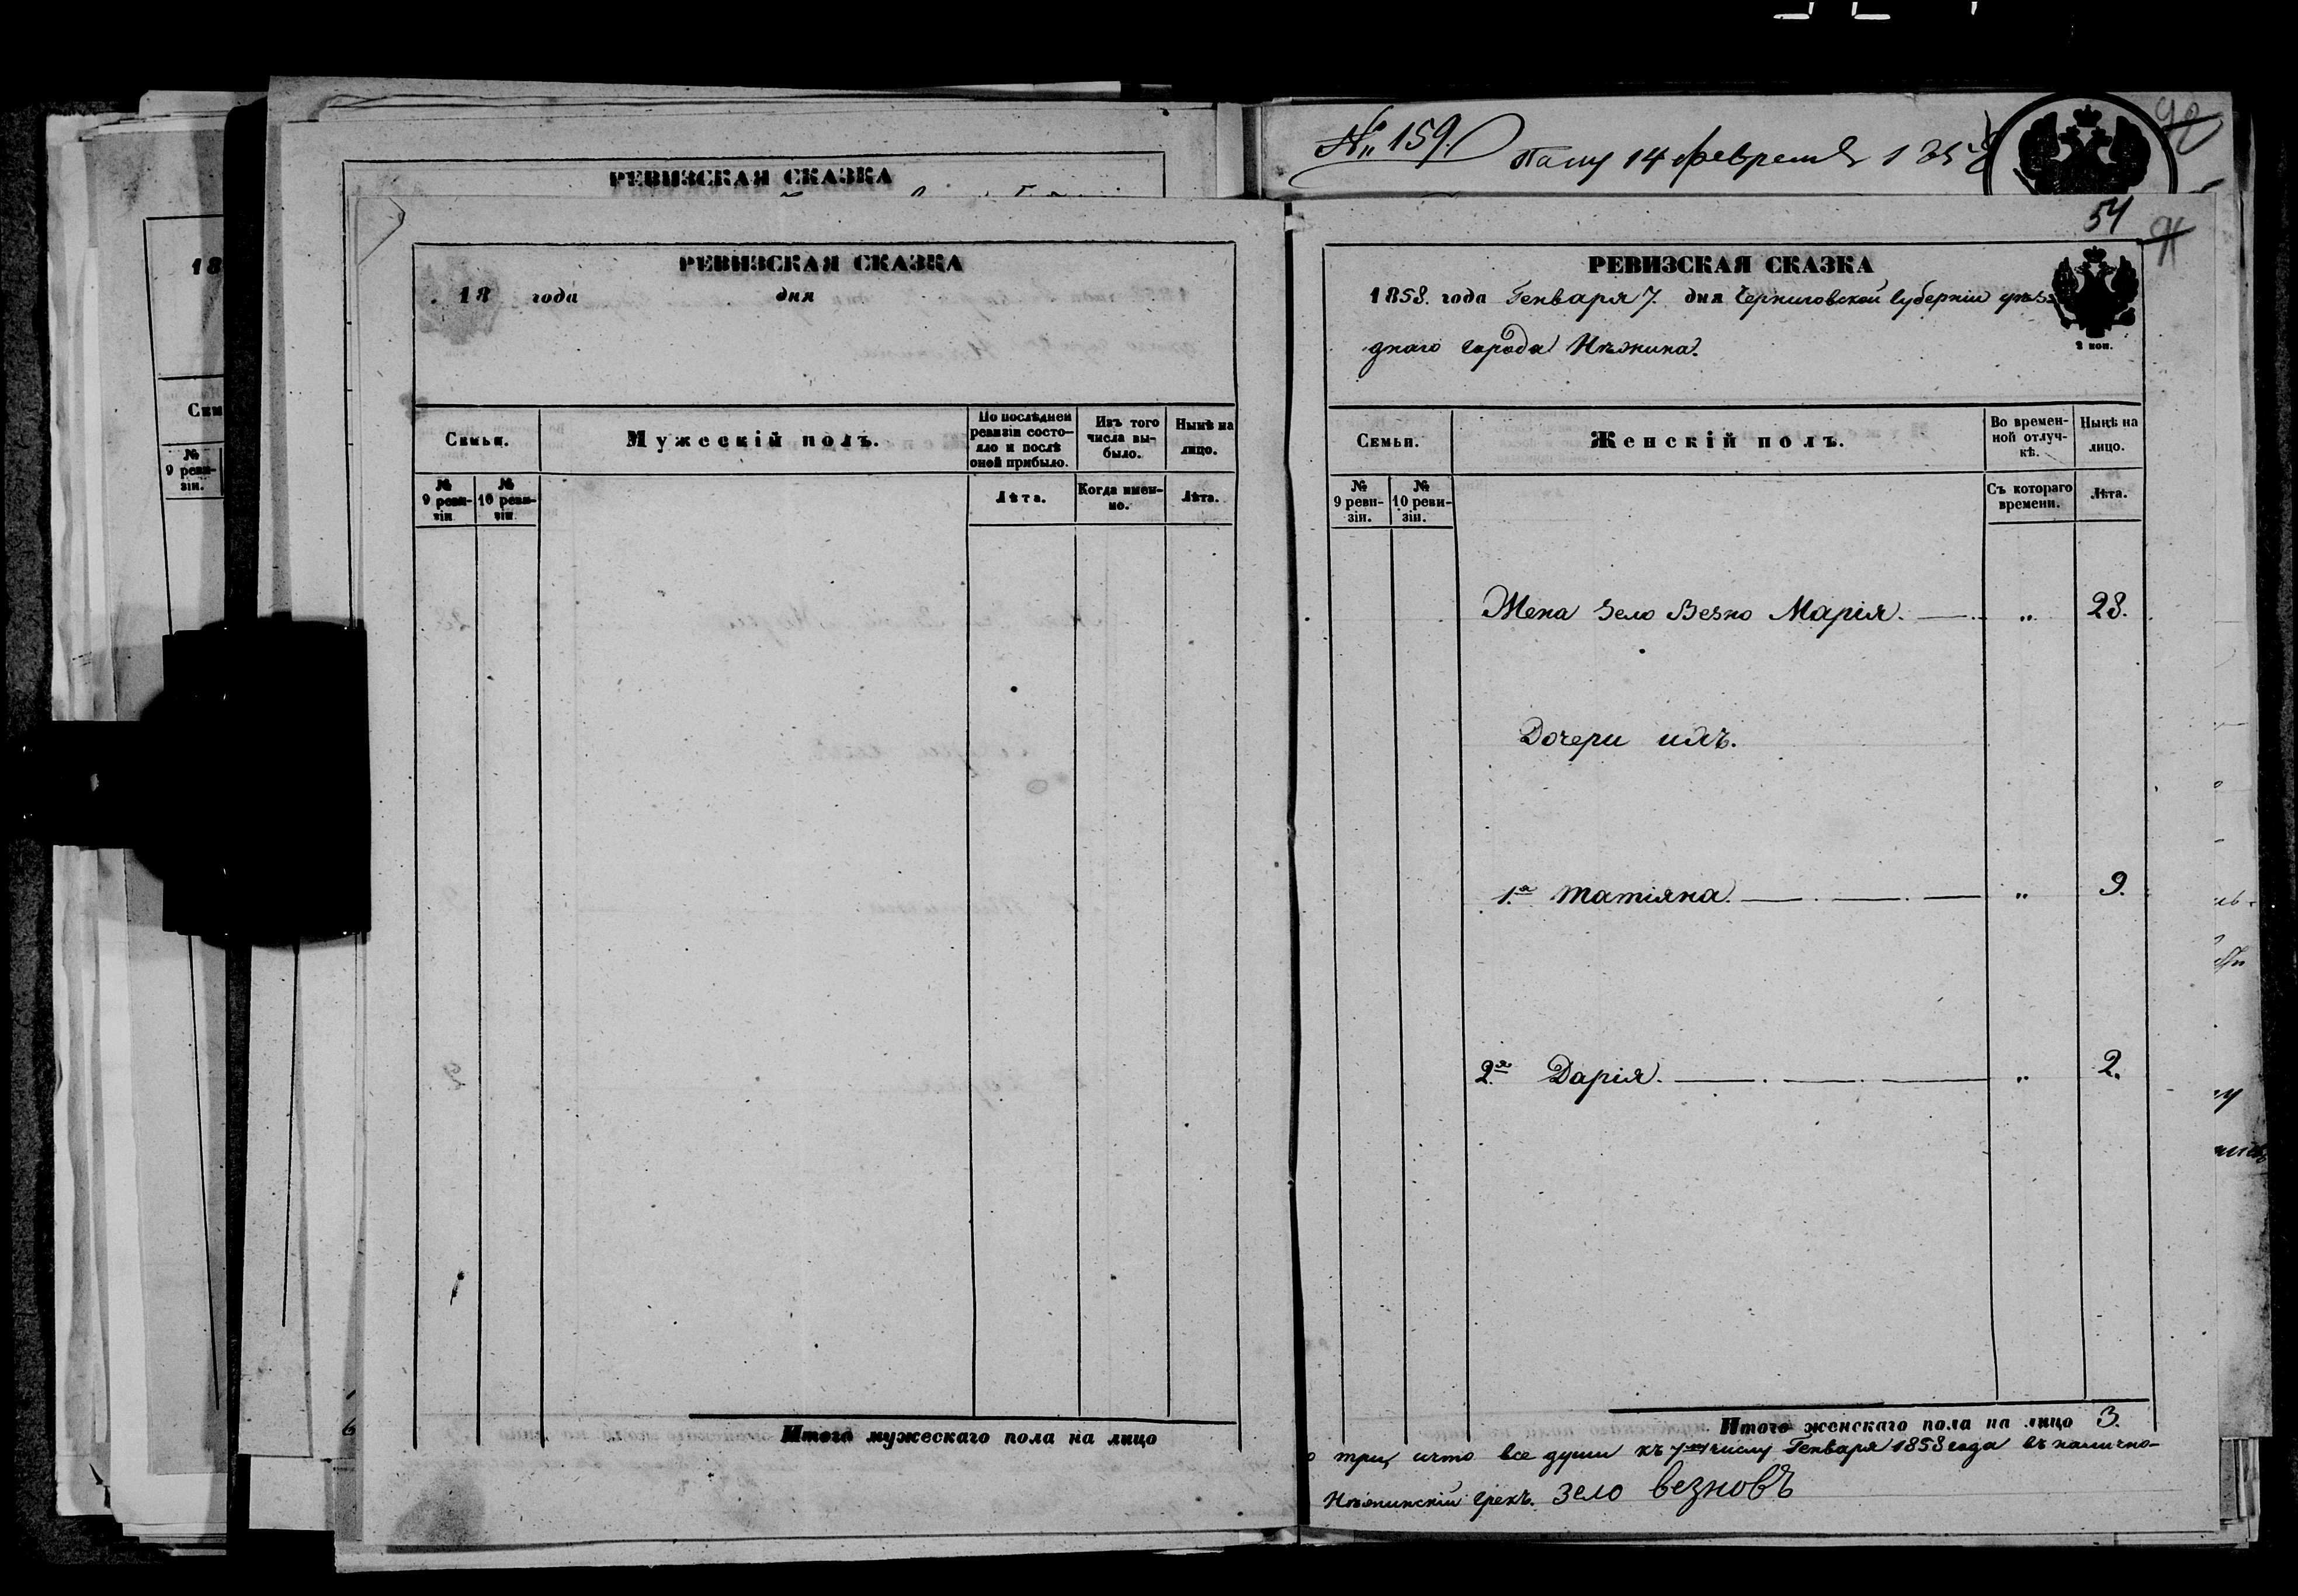 № 159.
Пану 14 февраля 1858
92
РЕВИЗСКАЯ СКАЗКА
18
Сем
№
9 реви-
зіи.
РЕВИЗСКАЯ СКАЗКА
18 года дня
Семьи.
Мужескій полъ.
По послѣдней
ревизіи состо-
яло и послѣ
оной прибыло.
Изъ того
числа вы-
было.
Нынѣ на
лицо.
№
9 реви-
зіи
№
10 реви-
зіи
Лѣта.
Когда имен-
но.
Лѣта.
Итого мужескаго пола на лицо
54
91
РЕВИЗСКАЯ СКАЗКА
1858. года Генваря 7. дня Черниговской Губерніи уѣз
днаго города Нѣжина.
2 коп.
Семьи.
Женскій полъ.
Во времен-
ной отлуч-
кѣ.
Нынѣ на
лицо.
№
9 реви-
зіи.
№
10 реви-
зіи.
Съ котораго
времени.
Лѣта.
Жена Зело Везно Марія. „ 28.
Дочери ихъ.
1.я Татіяна. „ 9.
2.я Дарія. „ 2.
Итого женскаго пола на лицо 3.
три, и что все души къ 7му числу Генваря 1858 года въ налично-
Нѣжинскій Грекъ. Зело везновъ